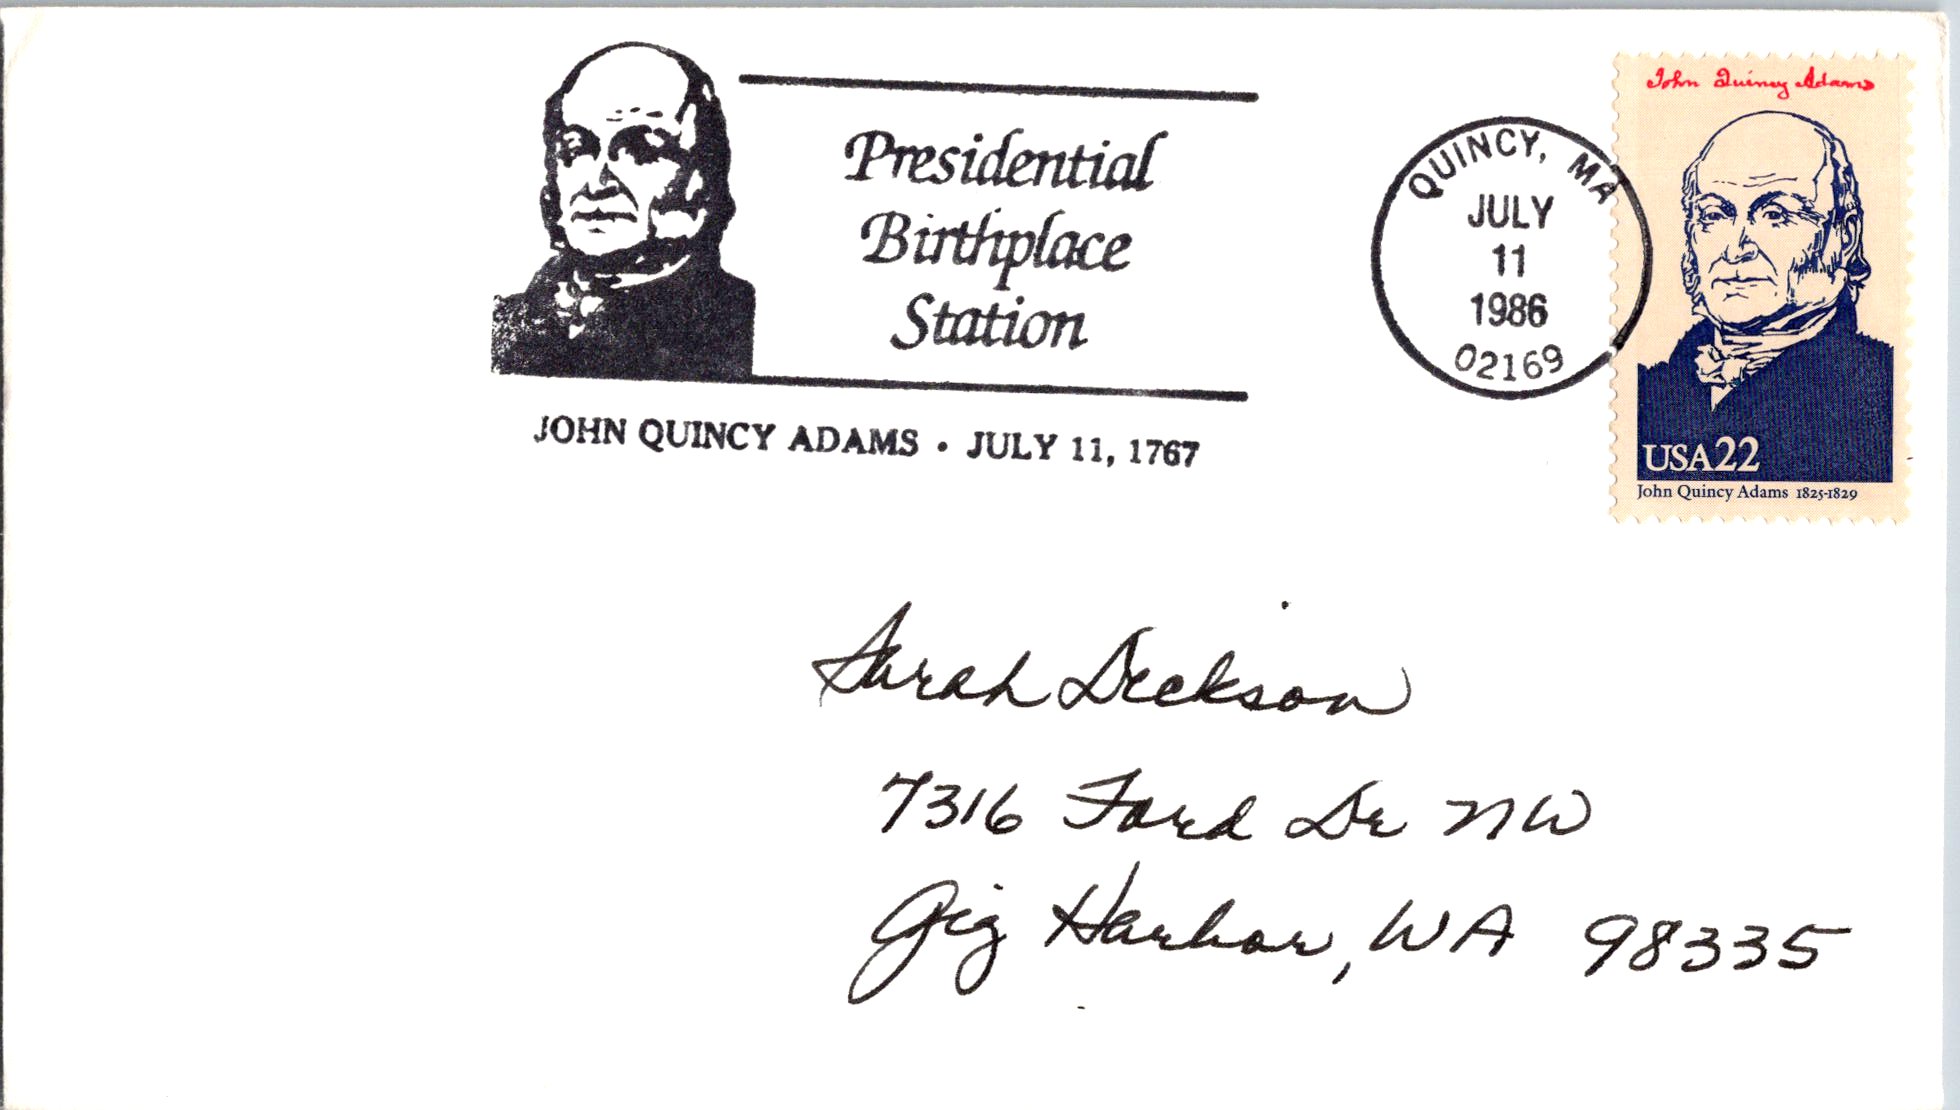 Presidential
Birthplace
Station
JOHN QUINCY ADAMS • JULY 11, 1767
QUINCY, MA
JULY
11
1986
02169
John Quincy Adams
USA22
John Quincy Adams 1825-1829
Sarah Dickson
7316 Ford Dr NW
Gig Harbor, WA 98335